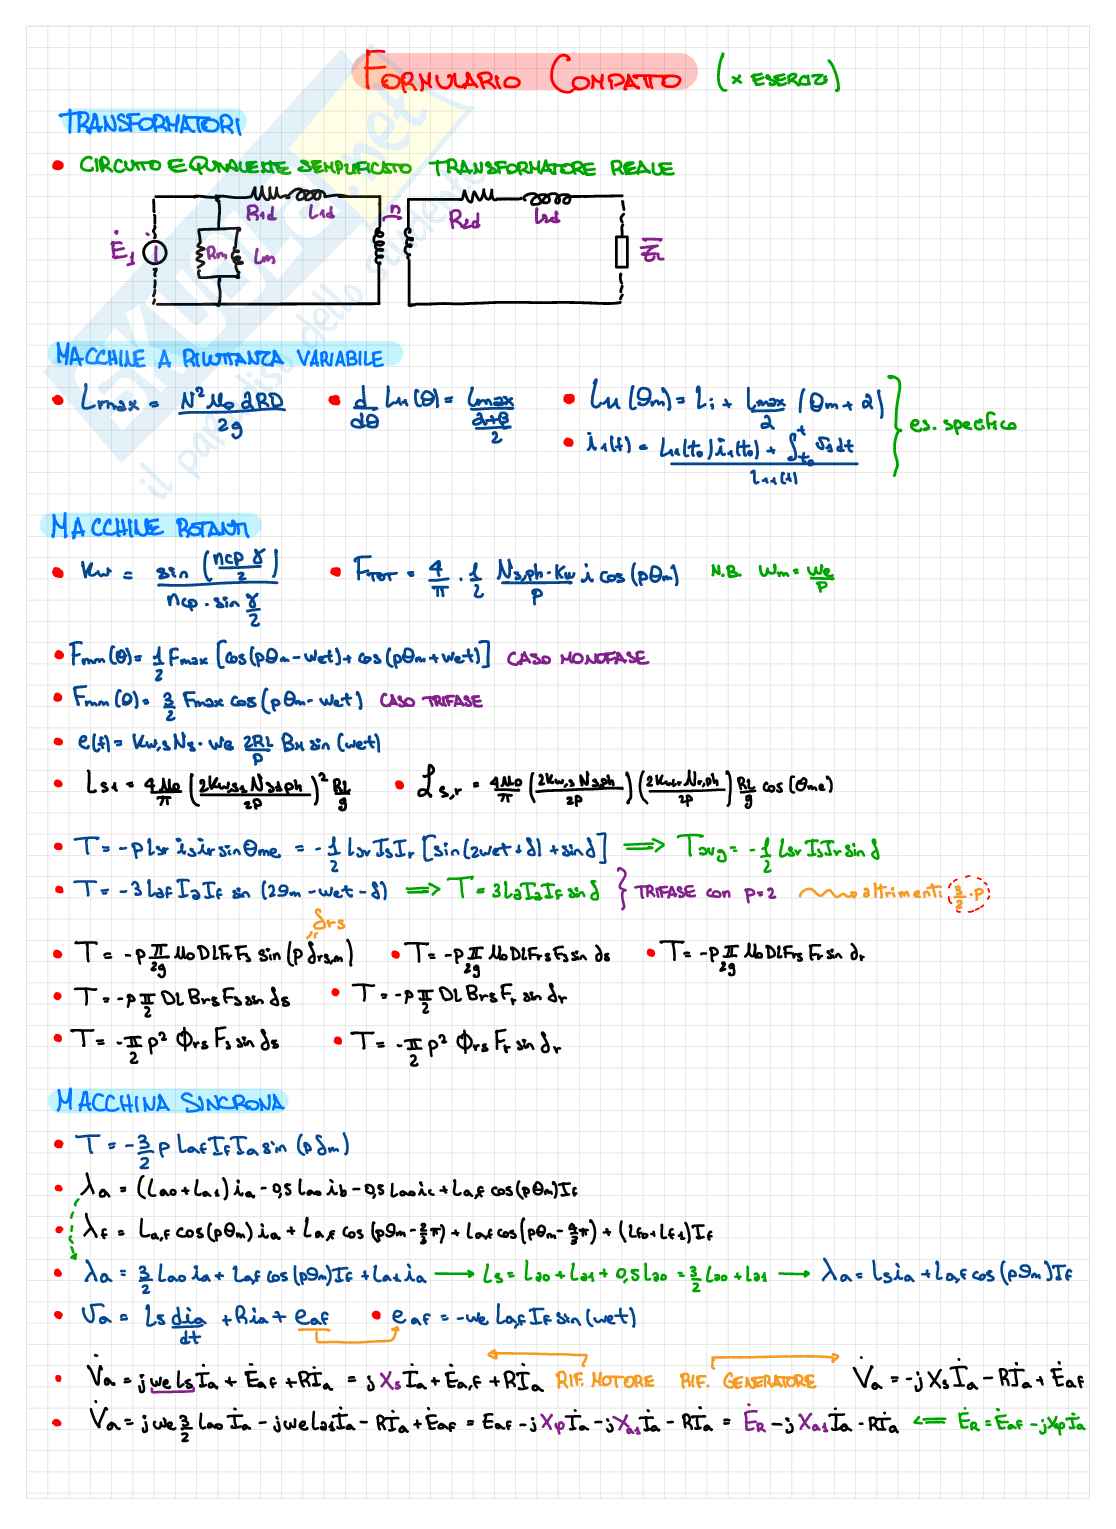 FORMULARIO COMPATTO (x ESERCIZI)
TRANSFORMATORI
• CIRCUITO EQUIVALENTE SEMPLIFICATO TRANSFORMATORE REALE
Ė₁ Rm Lm R1d L1d n R2d L2d
MACCHINE A RILUTTANZA VARIABILE
• Lmax = N² μ₀ αRD / 2g • d/dθ L₁₁(θ) = Lmax / (α+β)/2 • L₁₁(θm) = Li + Lmax/2 (θm + α)
• i₁(t) = (L₁₁(t₀) i₁(t₀) + ∫_{t₀}^{t} v₁ dt) / L₁₁(t) } es. specifico
MACCHINE ROTANTI
• Kw = sin(ncp γ/2) / (ncp · sin γ/2) • FTOT = 4/π · 1/2 Ns,ph · Kw / p i cos(pθm) N.B. Wm = We/p
• Fmm(θ) = 1/2 Fmax [cos(pθm - wet) + cos(pθm + wet)] CASO MONOFASE
• Fmm(θ) = 3/2 Fmax cos(pθm - wet) CASO TRIFASE
• e(t) = Kw,s Ns · we 2RL/p BM sin(wet)
• Ls1 = 4μ₀/π (2Kw,s1 Ns1ph / 2p)² RL/g • Ls,r = 4μ₀/π (2Kw,s Nsph / 2p) (2Kw,r Nr,ph / 2p) RL/g cos(θme)
• T = -p Lsr is ir sin θme = -1/2 Lsr Is Ir [sin(2wet + δ) + sin δ] ⟹ Tavg = -1/2 Lsr Is Ir sin δ
• T = -3 Laf Ia If sin(2θm - wet - δ) ⟹ T = 3 La Ia If sin δ } TRIFASE con p=2 altrimenti 3/2 · p
δrs
• T = -p π/2g μ₀ DL Fr Fs sin(p δrs,m) • T = -p π/2g μ₀ DL Frs Fs sin δs • T = -p π/2g μ₀ DL Frs Fr sin δr
• T = -p π/2 DL Brs Fs sin δs • T = -p π/2 DL Brs Fr sin δr
• T = -π/2 p² Φrs Fs sin δs • T = -π/2 p² Φrs Fr sin δr
MACCHINA SINCRONA
• T = -3/2 p Laf If Ia sin(p δm)
• λa = (Lao + La1) ia - 0,5 Lao ib - 0,5 Lao ic + La,f cos(pθm) If
• λf = La,f cos(pθm) ia + La,f cos(pθm - 2/3π) + Laf cos(pθm - 4/3π) + (Lf0 + Lf1) If
• λa = 3/2 Lao ia + La,f cos(pθm) If + La1 ia → Ls = Lao + La1 + 0,5 Lao = 3/2 Lao + La1 → λa = Ls ia + La,f cos(pθm) If
• va = Ls dia/dt + Ria + eaf • eaf = -we La,f If sin(wet)
• V̇a = jweLs İa + Ėaf + Rİa = jXs İa + Ėa,f + Rİa RIF. MOTORE RIF. GENERATORE V̇a = -jXs İa - Rİa + Ėaf
• V̇a = jwe 3/2 Lao İa - jweLa1 İa - Rİa + Ėaf = Eaf - jXp İa - jXa1 İa - Rİa = ĖR - jXa1 İa - Rİa ⟸ ĖR = Ėaf - jXp İa